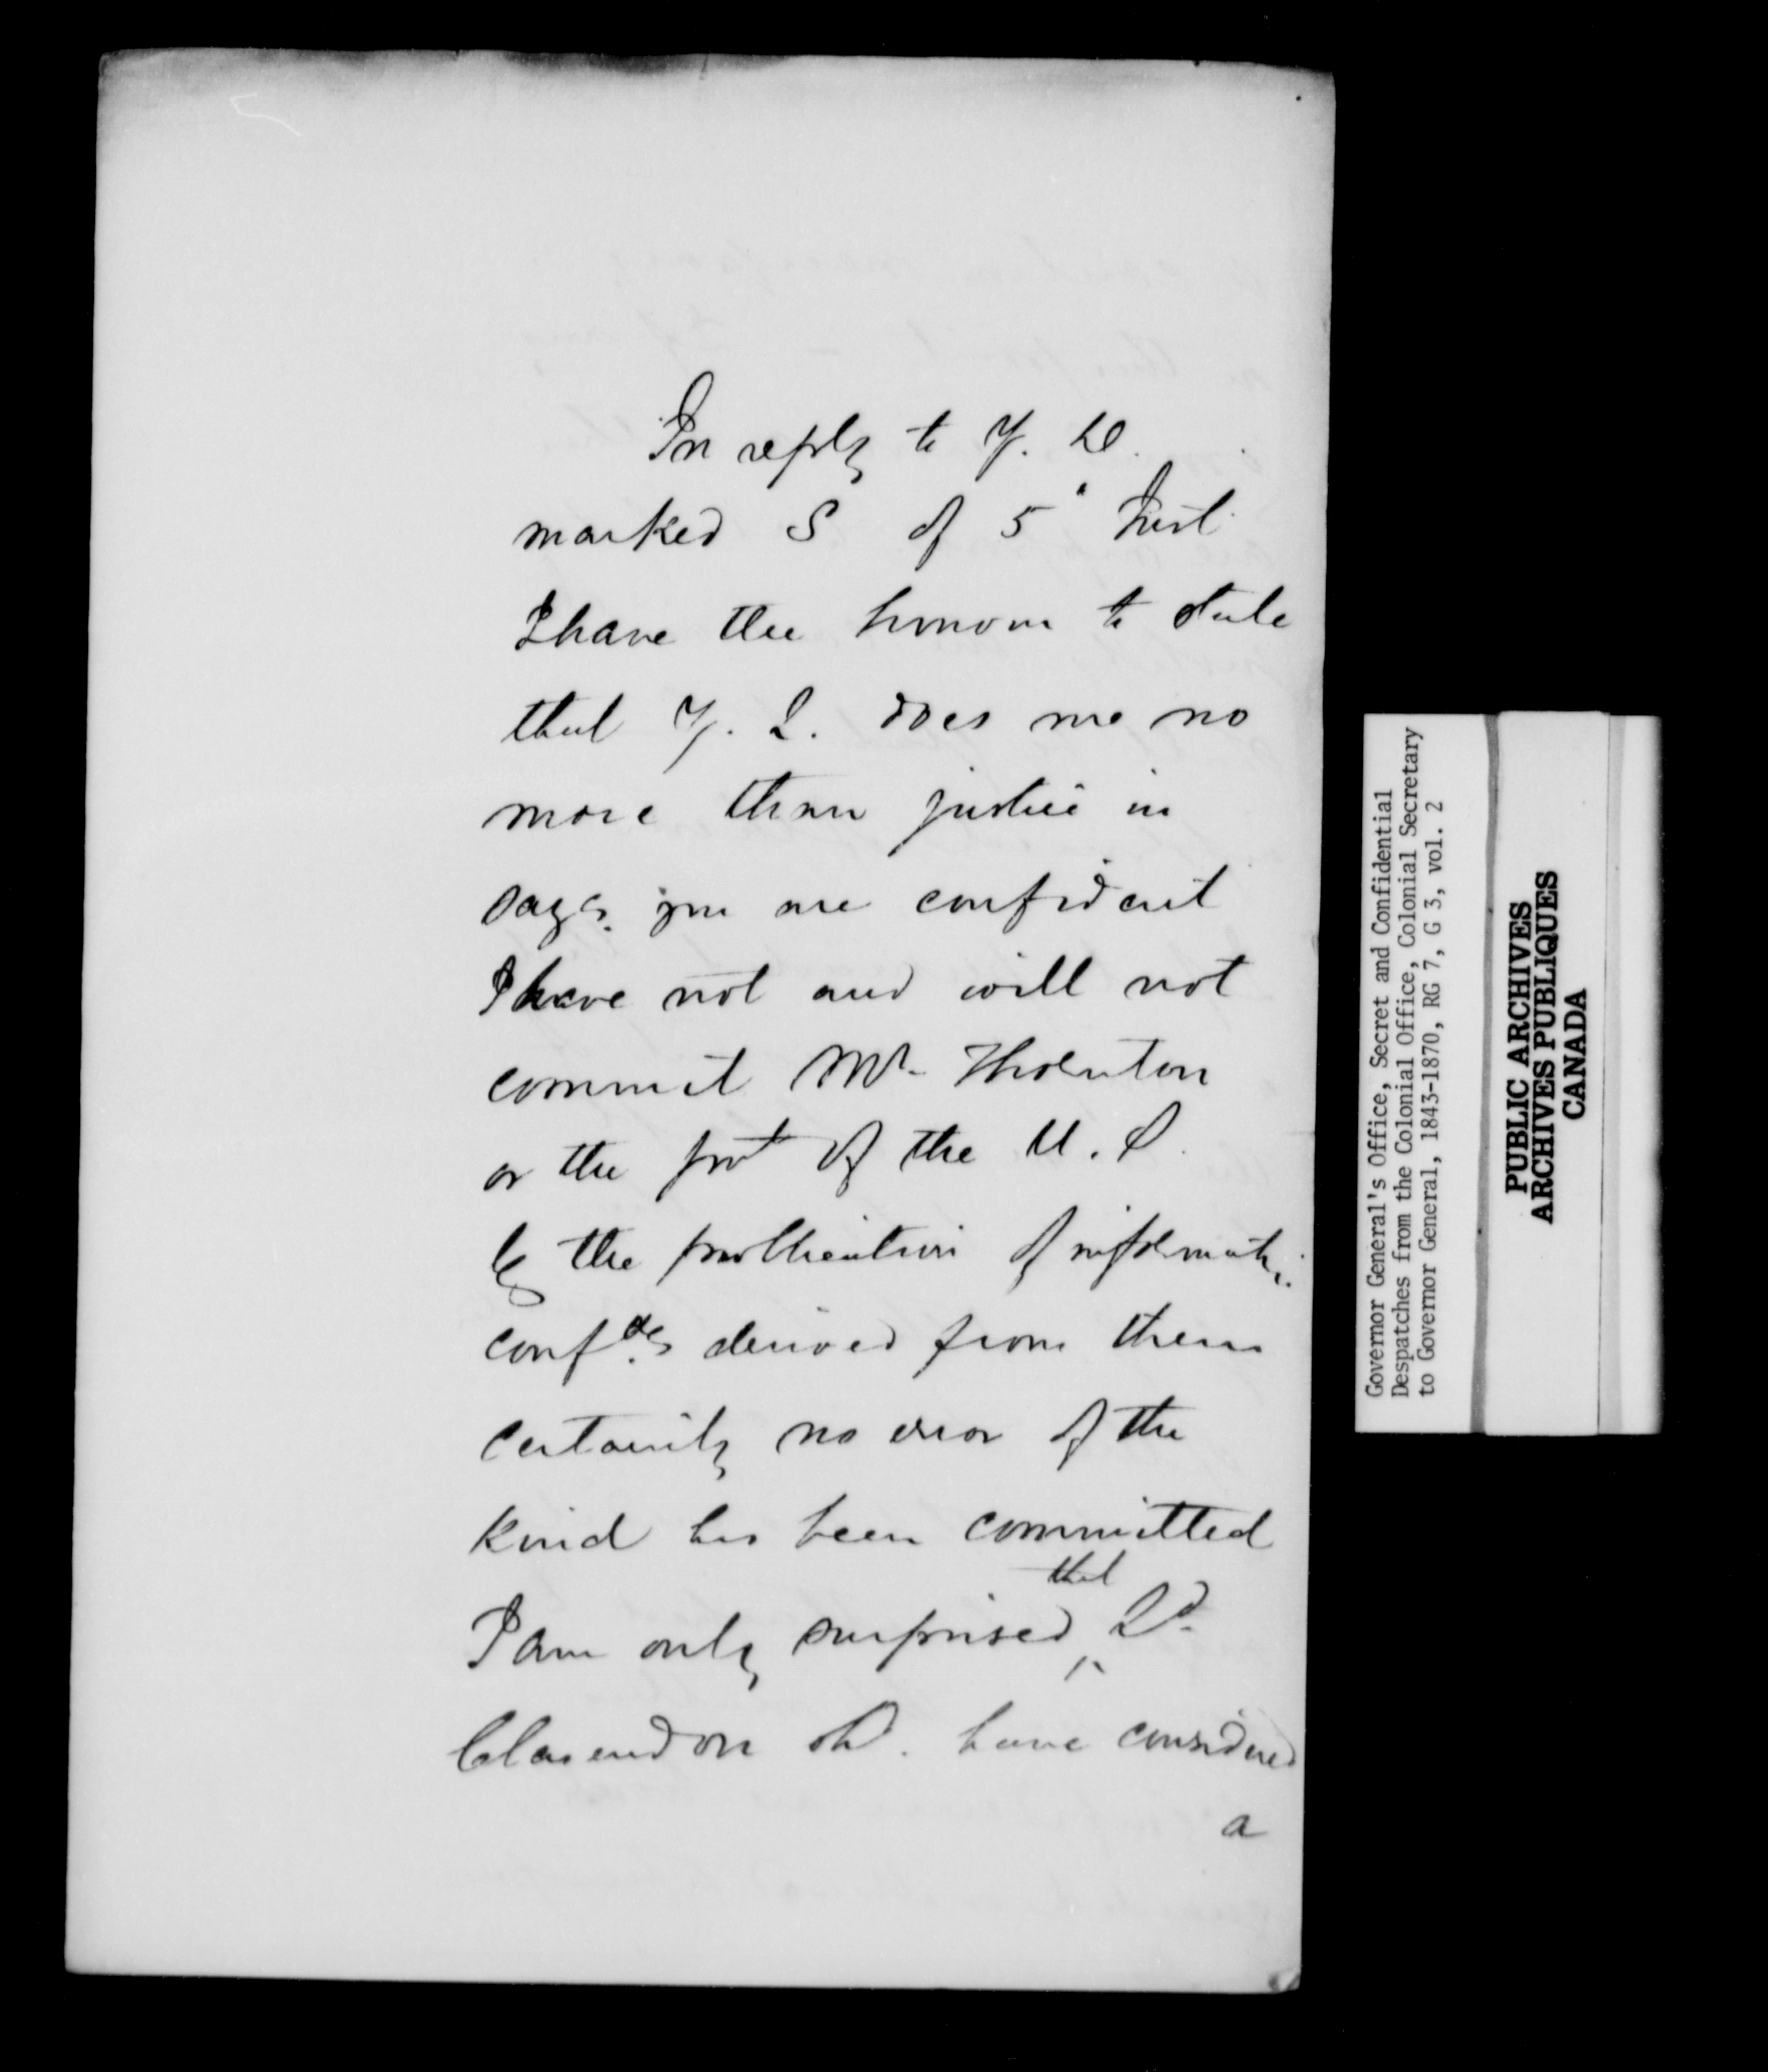 In reply to Y. D.
marked S of 5 Inst
I have the honour to state
that Y. L. does me no
more than justice in
sayg. you are confident
I have not and will not
commit Mr. Thornton
or the Govt of the U. S.
by the publication of informatn.
confdly derived from them
certainly no error of the
kind has been committed
I am only surprised that Ld.
Clarendon shd. have considered
a
Governor General's Office, Secret and Confidential
Despatches from the Colonial Office, Colonial Secretary
to Governor General, 1843-1870, RG 7, G 3, vol. 2
PUBLIC ARCHIVES
ARCHIVES PUBLIQUES
CANADA